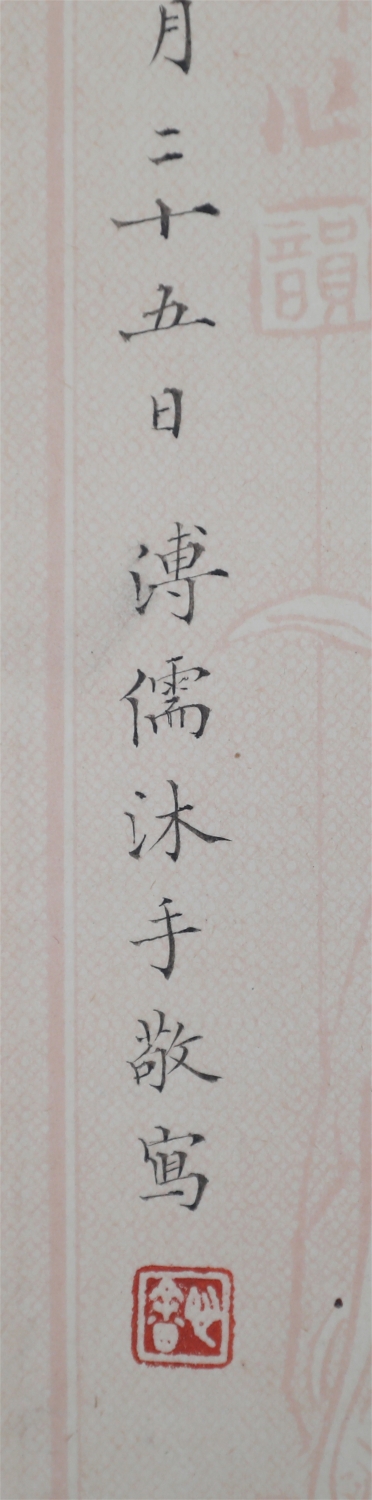 月二十五日 溥儒沐手敬寫
韻